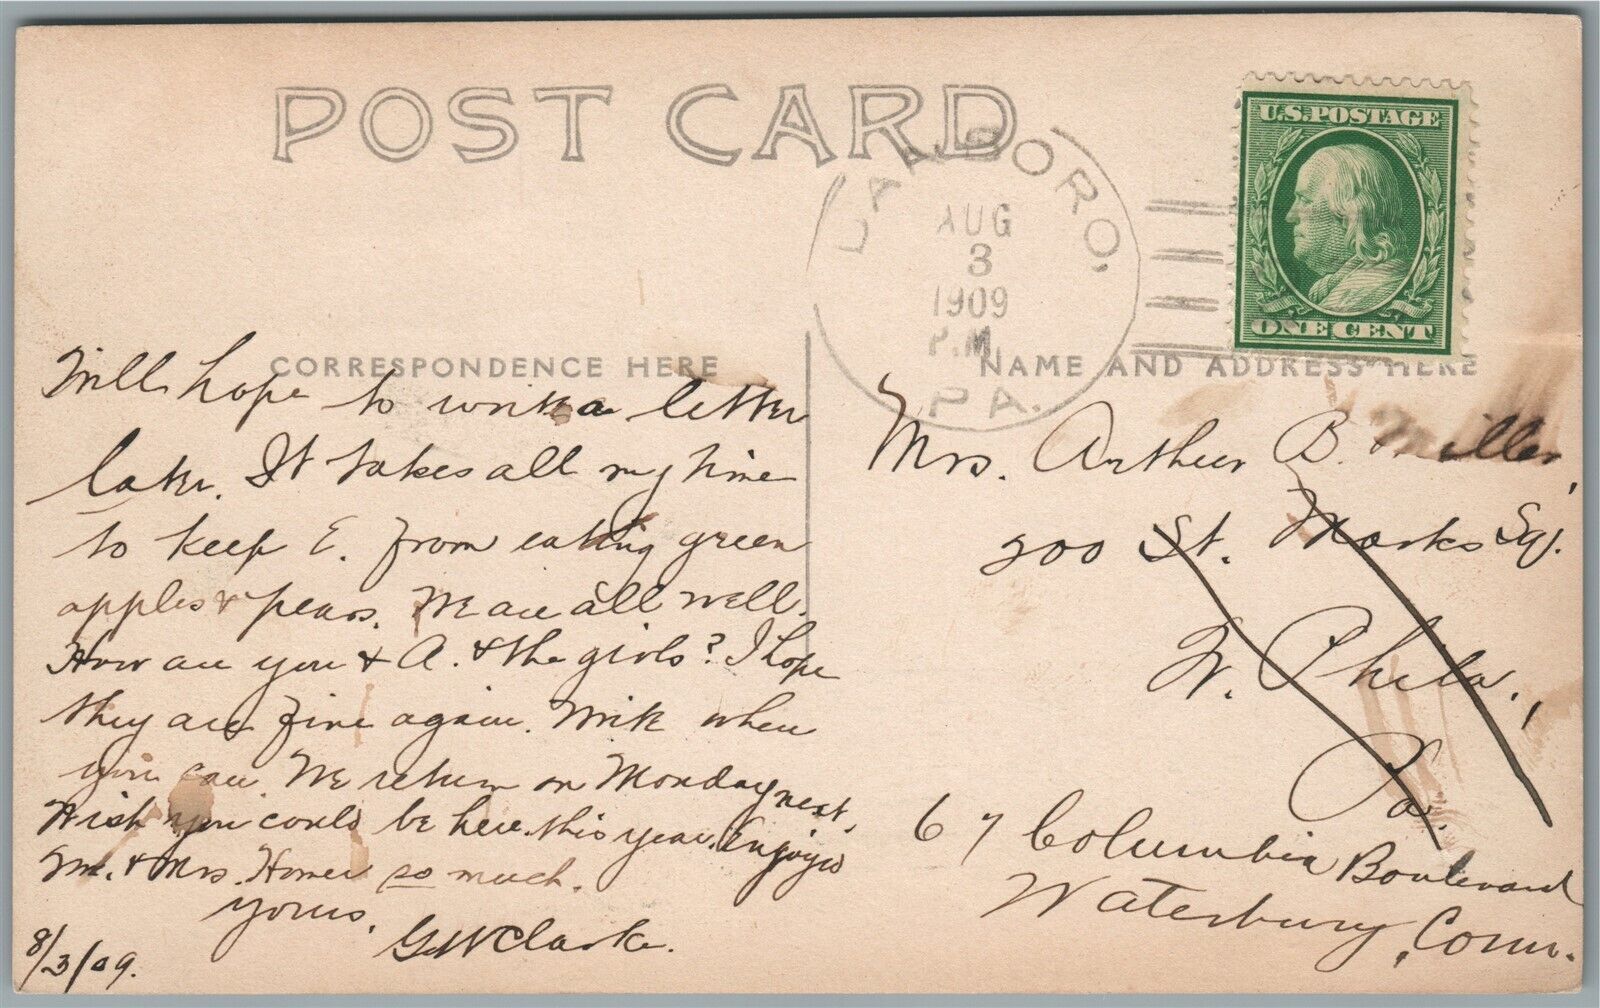 POST CARD
LAIRDSBORO,
AUG
3
1909
P.M.
PA.
U.S. POSTAGE
ONE CENT
CORRESPONDENCE HERE
Will hope to write a letter
later. It takes all my time
to keep E. from eating green
apples & pears. We are all well.
How are you & A. & the girls? I hope
they are fine again. Write when
you can. We return on Monday next.
Wish you could be here this year. Enjoyed
Mr. & Mrs. Homer so much.
Yours,
G W Clarke.
8/3/09.
NAME AND ADDRESS HERE
Mrs. Arthur B. Miller,
200 St. Marks Sq.
W. Phila.,
Pa.
67 Columbia Boulevard
Waterbury, Conn.